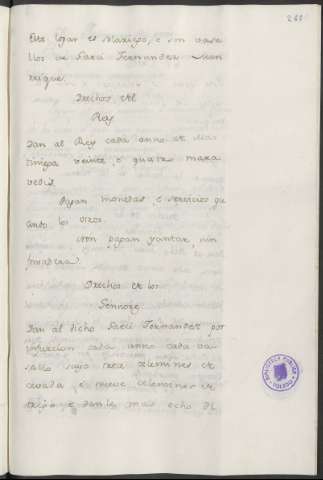 261
Este logar es Mariego, e son vasa
llos de Garci Fernandez Man
rrique.
Drechos del
Rey
Dan al Rey cada anno de Mar
tiniega veinte e quatro mara
vedis.
Pagan monedas e servicios qu
ando los otros.
Non pagan yantar, nin
fonsadera.
Drechos de los
Sennores
Dan al dicho Garci Fernandez por
infurcion cada anno cada va
sallo suyo trece celemines de
cevada e nueve celemines de
trigo e danle mas echo di
BIBLIOTECA PUBLICA
TOLEDO